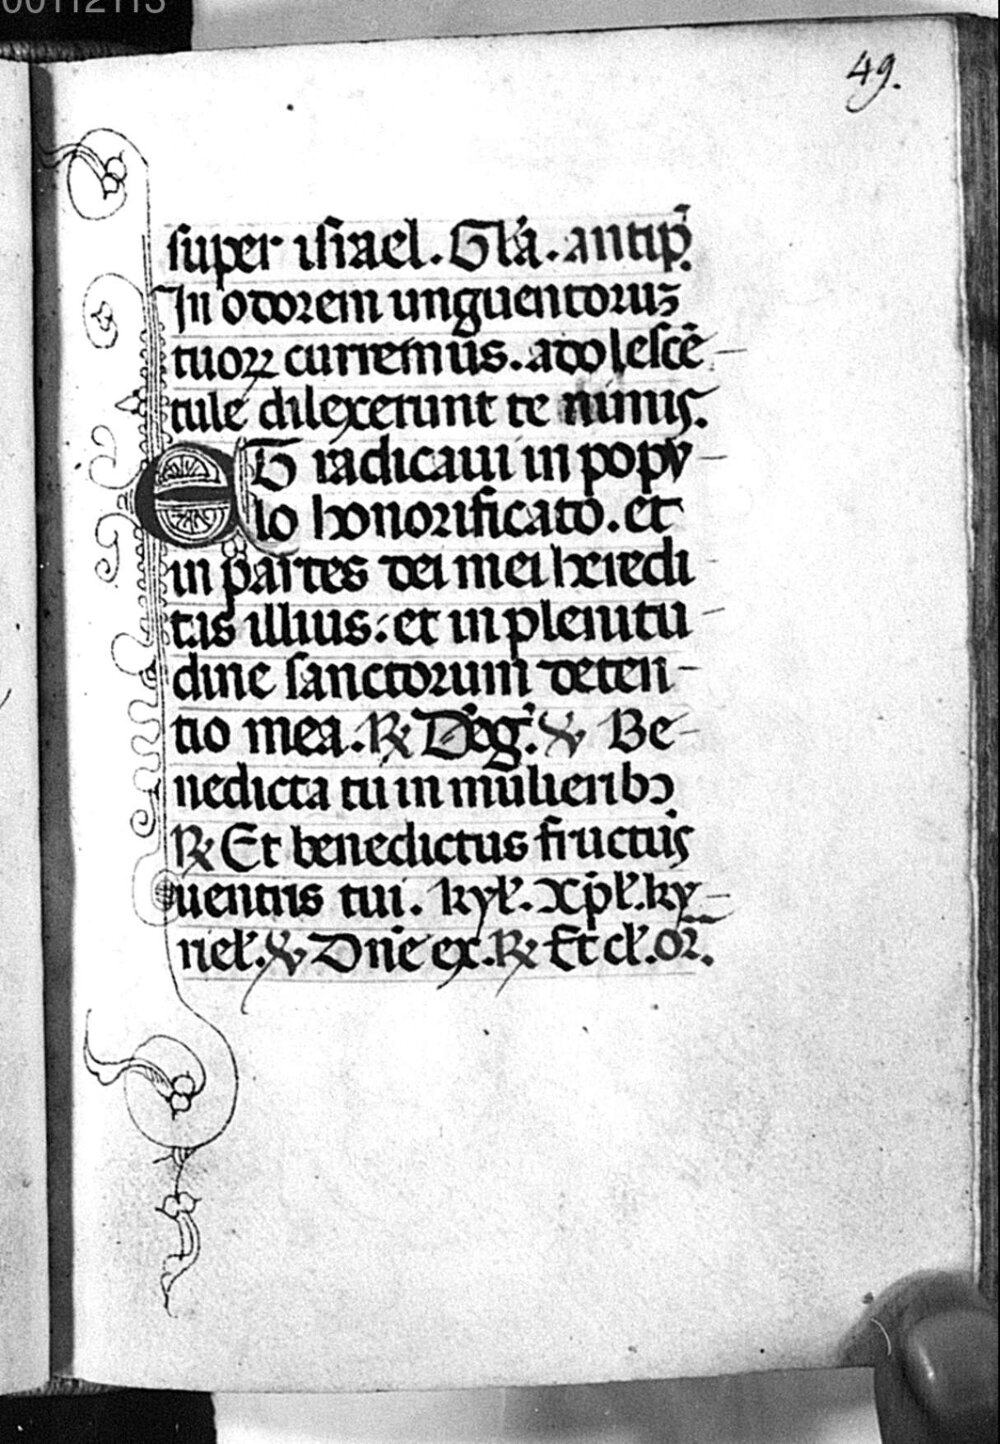 00112113
49.
super israel. Gl'a. antip̃.
In odorem unguentoruꝫ
tuoꝝ curremus. adolescē
tule dilexerunt te nimis.
ET radicaui in popu
lo honorificato. et
in partes dei mei heredi
tas illius: et in plenitu
dine sanctorum deten
tio mea. ℟ Deo g̃. ℣ Be
nedicta tu in mulieribꝰ
℟ Et benedictus fructus
uentris tui. kyl'. Xp̄l'. ky
riel'. ℣ Dn̄e ex. ℟ Et cl'. or̄.